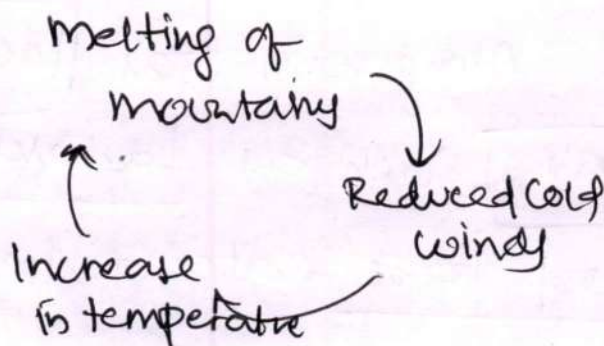 Melting of
mountains
Reduced cold
winds
Increase
in temperature